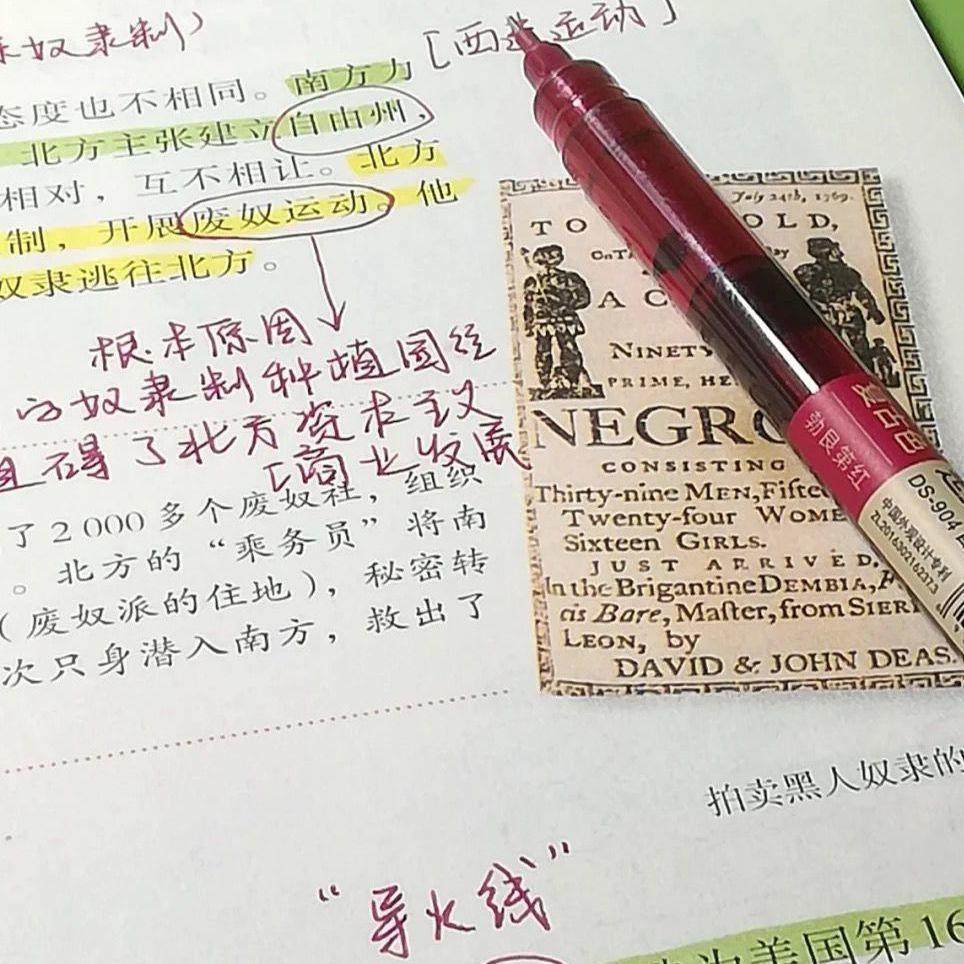 奴隶制）
[西进运动]
态度也不相同。南方力
北方主张建立自由州，
相对，互不相让。北方
制，开展废奴运动。他
奴隶逃往北方。
根本原因
奴隶制种植园经
且碍了北方资本主义
工商业发展
了2 000多个废奴社，组织
。北方的“乘务员”将南
（废奴派的住地），秘密转
次只身潜入南方，救出了
July 24th, 1769.
TO OLD,
On
A C
NINETY
PRIME, HE
NEGRO
CONSISTING
Thirty-nine MEN, Fifte
Twenty-four WOME
Sixteen GIRLS.
JUST ARRIVED,
In the Brigantine DEMBIA, F
as Bare, Master, from SIER
LEON, by
DAVID & JOHN DEAS.
拍卖黑人奴隶的
“导火线”
为美国第16
勃艮第红
DS-90
中国外观设计专利
ZL2016302216237.3